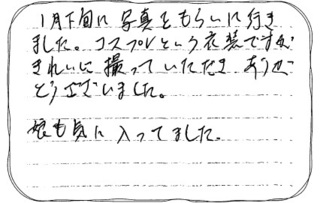 1月下旬に写真をもらいに行き
ました。コスプレという衣装ですが
きれいに撮っていただきありが
とうございました。
娘も気に入ってました。